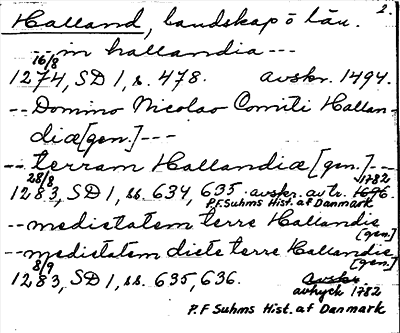 2.
Halland, landskap o län.
-- in hallandia ---
16/8
1274, SD 1, s. 478. avskr. 1494.
-- Domino Nicolao Comiti Hallan-
diæ [gen.] ---
-- terram Hallandiæ [gen.] --
28/8 1782
1283, SD 1, ss. 634, 635. avskr. avtr. 1696.
P.F. Suhms Hist. af Danmark
-- medietatem terre Hallandie
[gen.]
-- medietatem dicte terre Hallandie
[gen.]
8/9
1283, SD 1, ss. 635, 636. avskr.
avtryck 1782
P.F Suhms Hist. af Danmark